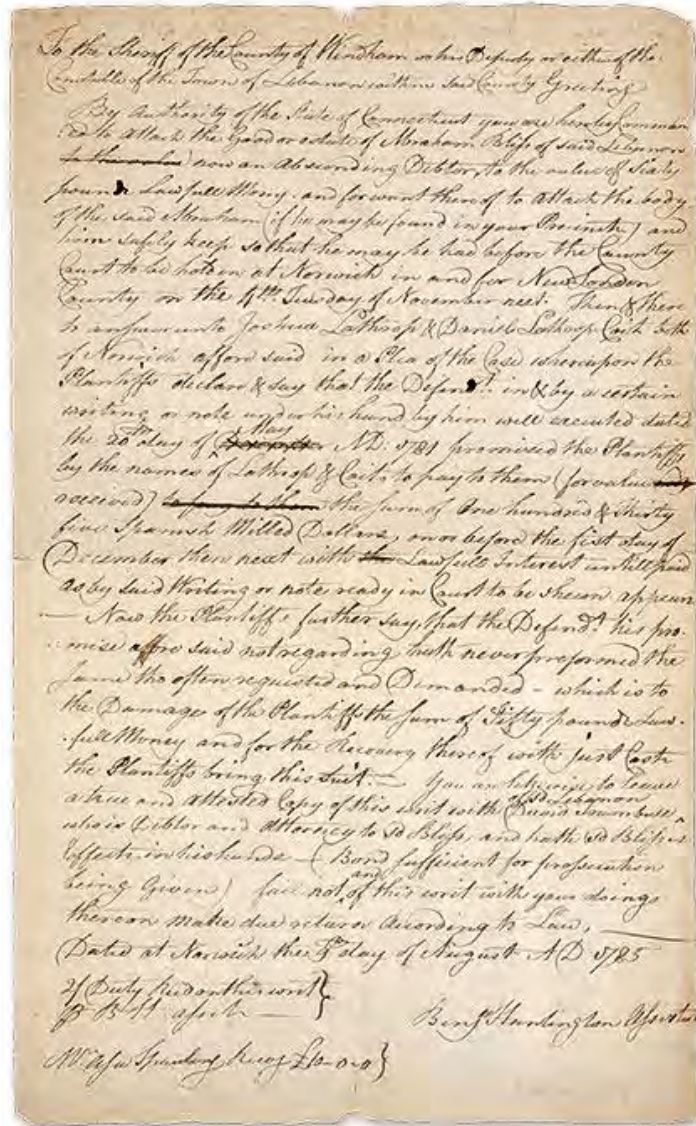 To the Sheriff of the County of Windham or his Deputy or either of the
Constable of the Town of Lebanon within said County Greeting
By Authority of the State of Connecticut you are hereby Comman
ded to attach the Good or estate of Abraham Bliss of said Lebanon
now an Absconding Debtor, to the value of Sixty
pound Lawfull Money. and for want thereof to attach the body
of the said Abraham (if he may be found in your Precincts) and
him safely keep so that he may be had before the County
Court to be holden at Norwich in and for New London
County on the 4th. Tuesday of November next. Then & there
to answer unto Joshua Lathrop & Daniel Lathrop Coit both
of Norwich afford said in a Plea of the Case whereupon the
Plantiffs declare & say that the Defendt. in & by a certain
writing or note under his hand by him well executed dated
the 20th day of May AD: 1781 promised the Plantiffs
by the names of Lathrop & Coit to pay to them (for value
received) to pay to them the sum of One hundred & thirty
five Spanish Milled Dollars, on or before the fist day of
December then next with the Lawfull Interest untill paid
as by said Writing or note ready in Court to be shewn appears
— Now the Plantiffs further say, that the Defendt. his pro-
mise affore said not regarding hath never preformed the
same tho often requested and Demanded - which is to
the Damage of the Plantiffs the sum of Fifty pounds Law-
full Money and for the Recovery thereof with just Costs
the Plantiffs bring this Suit. — You are likewise to leave
a true and attested Copy of this writ with David Trumbull of sd Lebanon
who is Debtor and Attorney to sd Bliss, and hath sd Bliss's
Effects in his hands — (Bond sufficient for prosecution
being Given) fail not, and of this writ with your doings
thereon make due return According to Law,
Dated at Norwich the day of August AD 1785
2/ Duty paid on this writ }
Benjn Huntington Assistant
Mr. Asa Spaulding Recog £10-0-0 }